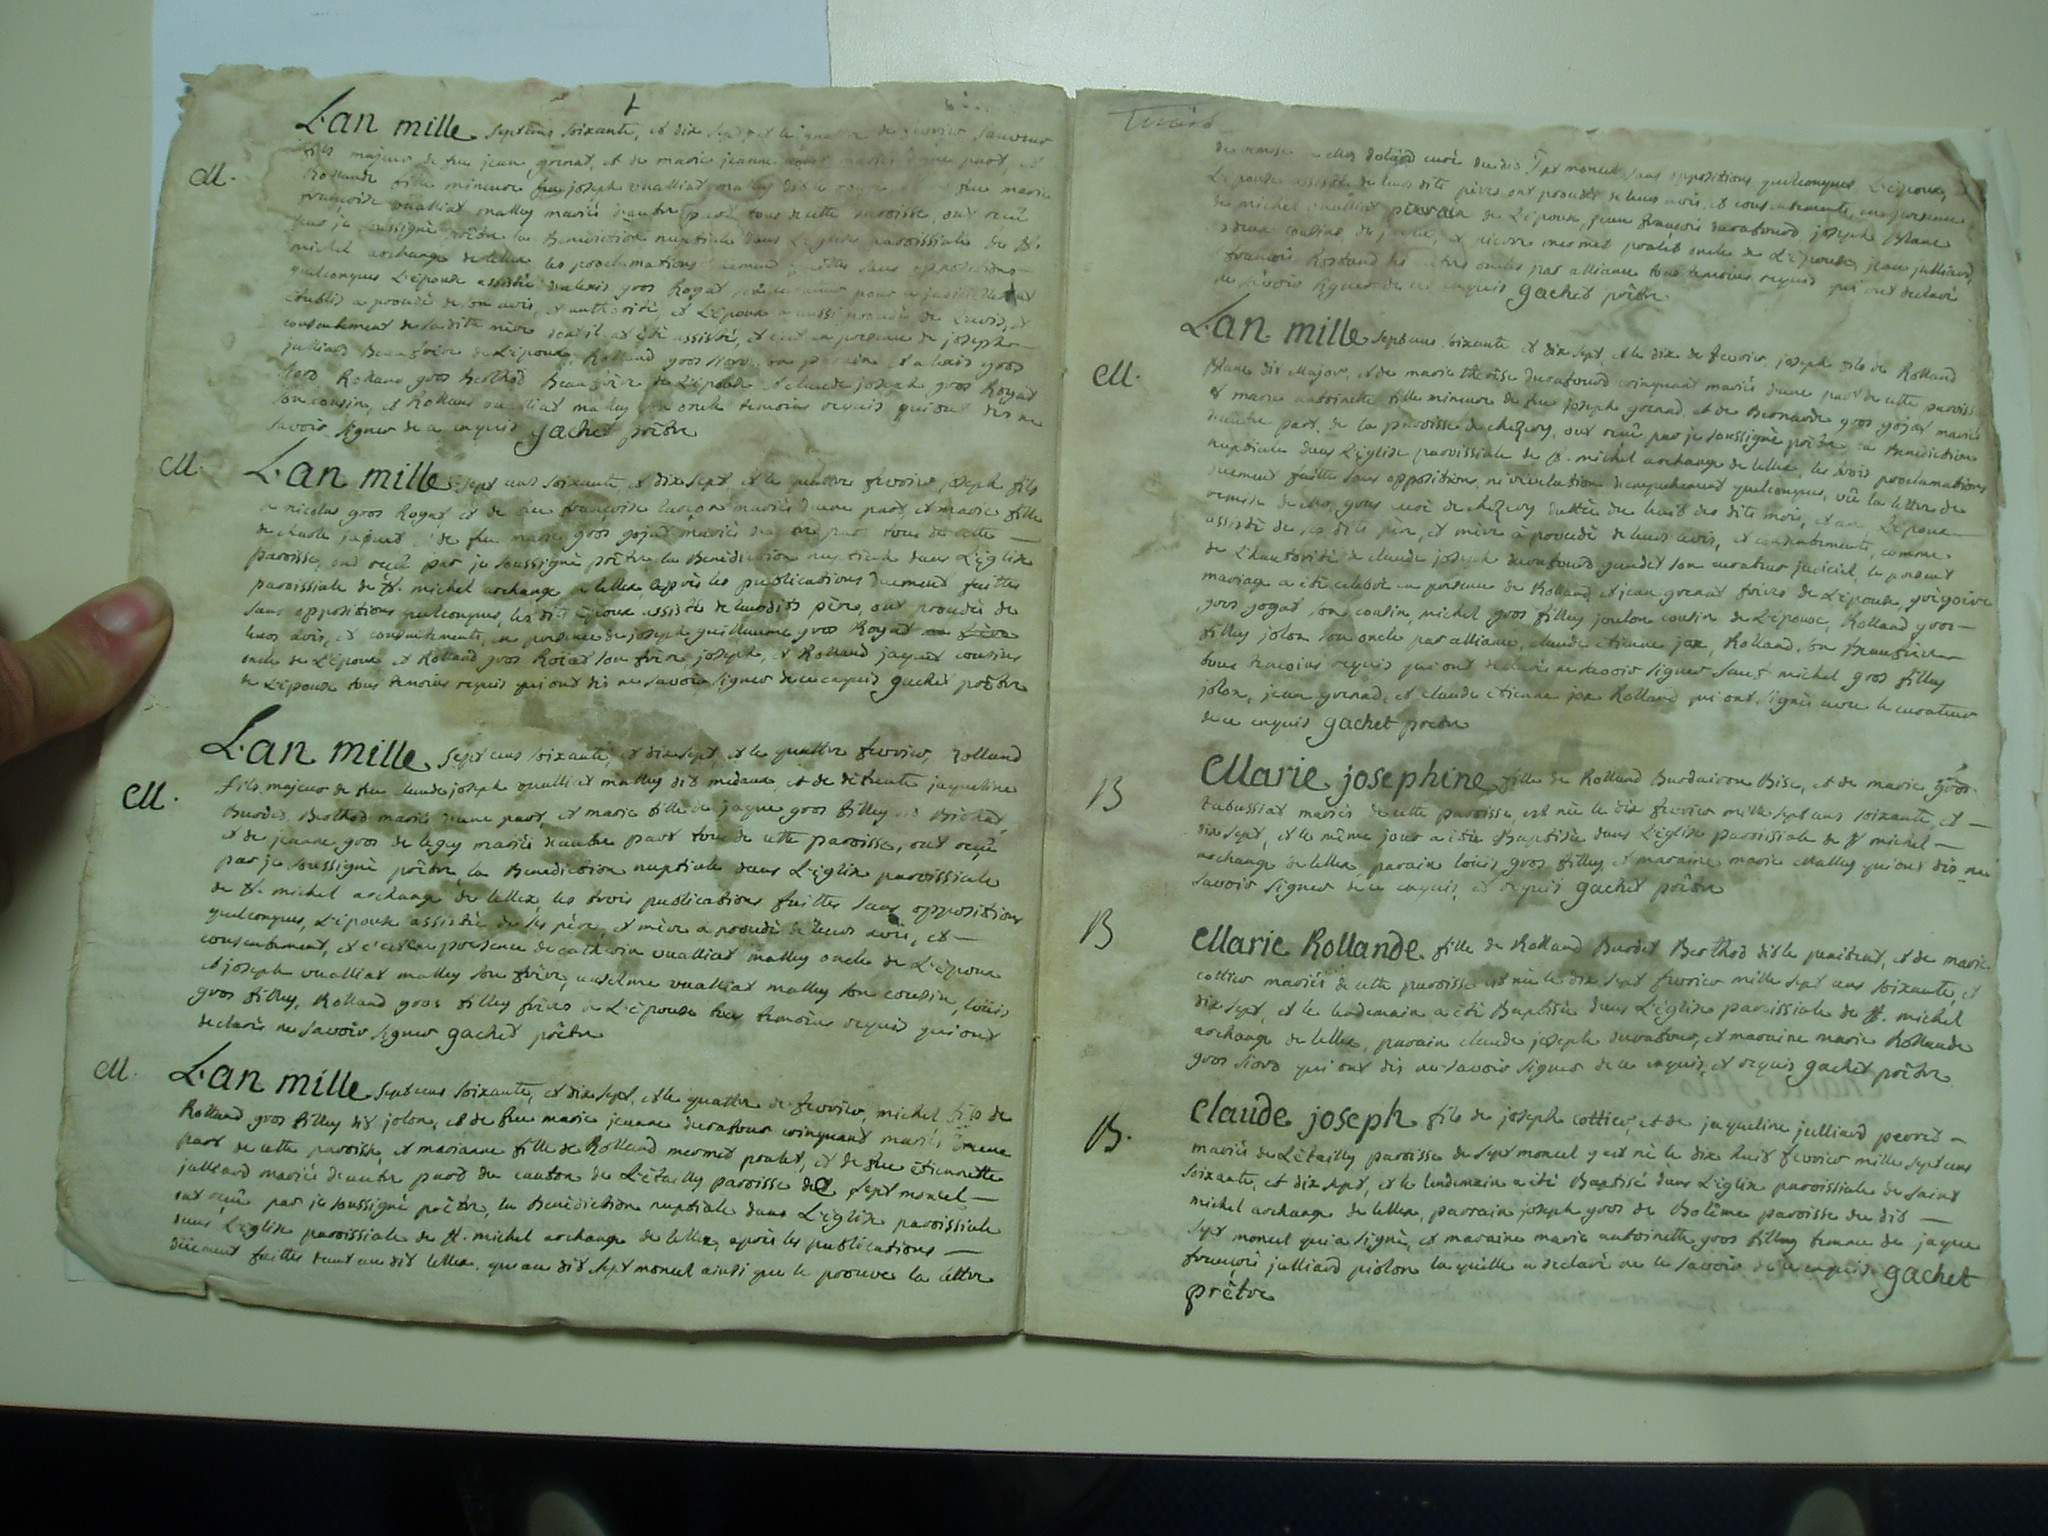 L'an mille septcens soixante, et dix sept et le quattre de fevrier sauveur
fils majeur de feu jean grenat, et de marie jeanne mariés d'une part, et
Rollande fille mineure feu joseph vuilliat malley dit le et feu marie
françoise vuilliat malley mariés d'autre part tous de cette paroisse, ont reçû
par je soussigné prêtre la Benediction nuptiale dans L'eglise paroissiale de St.
michel archange de lellex les proclamations duement faittes sans oppositions
quelconques L'épouse assistée d'alexis gros Rogat
établis a procedé de son avis, et authorité, et L'époux a aussi procedé de L'avis, et
consentement de sa dite mère dont il at été assisté, et c'est en presence de joseph
julliard Beaufrère de L'époux, Rolland gros
Rolland gros Berthod Beaufrère de L'épouse et claude joseph gros Rogat
son cousin, et Rolland vuilliat malley son oncle temoins requis qui ont dis ne
savoir signer de ce enquis gachet prêtre
M.
L'an mille sept cens soixante, et dix sept, et le quattre fevrier joseph fils
de nicolas gros Rogat et de feu françoise mariés d'une part, et marie fille
de claude jaquet et de feu marie gros gojat mariés d'autre part tous de cette
paroisse, ont reçû par je soussigné prêtre la Benediction nuptiale dans L'eglise
paroissiale de St. michel archange de lellex, après les publications duement faittes
sans oppositions quelconques, les dits époux assistés de leursdits pères, ont procedés de
leurs avis, et consentements, en presence de joseph guillaume gros Rogat
oncle de L'époux et Rolland gros Rogat son frère, joseph, et Rolland jaquet cousins
de L'épouse tous temoins requis qui ont dis ne savoir signer de ce enquis gachet prêtre
M.
L'an mille septcens soixante, et dix sept, et le quattre fevrier, Rolland
fils majeur de feu claude joseph vuilliat malley dit medaux, et de défunte jaqueline
Burdet Berthod mariés d'une part, et marie fille de jaque gros filley dit
et de jeanne gros de legey mariés d'autre part tous de cette paroisse, ont reçû
par je soussigné prêtre la Benediction nuptiale dans L'eglise paroissiale
de St. michel archange de lellex, les trois publications faittes sans oppositions
quelconques, L'épouse assistée de ses père, et mère a procedé de leurs avis, et
consentement, et c'est en presence de vuilliat malley oncle de L'époux
et joseph vuilliat malley son frère, anselme vuilliat malley son cousin, loüis
gros filley, Rolland gros filley frères de L'épouse tous temoins requis qui ont
declarés ne savoir signer gachet prêtre
M.
M.
L'an mille septcens soixante, et dix sept, et le quattre de fevrier, michel fils de
Rolland gros filley dit jolon, et de feu marie jeanne durafour coinquant mariés d'une
part de cette paroisse, et marianne fille de Rolland mermet poulet, et de feu étiennette
julliard mariés d'autre part du canton de L'étailly paroisse de sept moncel
ont reçû par je soussigné prêtre, la Benediction nuptiale dans L'eglise paroissiale
dans L'eglise paroissiale de St. michel archange de lellex, après les publications
düement faittes tant au dit lellex, qu'au dit sept moncel ainsi que le prouve la lettre
de remise de curé du dit Sept moncel sans oppositions quelconques L'époux,
L'épouse assistés de leurs dits pères ont procedés de leurs avis, et consentements, en presence
de michel vuilliat parrain de L'époux, jean françois durafourd joseph Blanc
et pierre mermet poulet oncle de L'épouse, jean julliard,
françois oncles par alliance tous temoins requis qui ont declaré
ne savoir signer de ce enquis gachet prêtre
M.
L'an mille septcens soixante et dix sept, et le dix de fevrier, joseph fils de Rolland
Blanc dit Major, et de marie thérèse durafourd coinquant mariés d'une part de cette paroisse
et marie antoinette fille mineure de feu joseph grenad, et de Bernarde gros gojat mariés
d'autre part, de la paroisse de chezery, ont reçû par je soussigné prêtre la Benediction
nuptiale dans L'eglise paroissiale de St. michel archange de lellex, les trois proclamations
duement faittes sans oppositions, ni revelation d'empechement quelconques, vûe la lettre de
remise de curé de chezery dattée du huit des dits mois, et an, L'époux
assisté de ses dits père, et mère a procedé de leurs avis, et consentements, comme
de L'hautorité de claude joseph durafourd son curateur judiciel, le present
mariage a été celebré en presence de Rolland, et jean grenat frères de L'épouse, grégoire
gros gogat son cousin, michel gros filley joulon cousin de L'épouse, Rolland gros
filley jolon son oncle par alliance, claude étienne jax, Rolland son Beaufrère
tous temoins requis qui ont declaré ne savoir signer sauf michel gros filley
jolon, jean grenad, et claude étienne jax Rolland qui ont signés avec le curateur
de ce enquis gachet prêtre
B
Marie josephine fille de Rolland Burdairon Bise, et de marie gros
tabussiat mariés de cette paroisse est née le dix fevrier mille sept cens soixante, et
dix sept, et le même jour a été Baptisée dans L'eglise paroissiale de St michel
archange de lellex, parain loüis gros filley et maraine marie Malley qui ont dis ne
savoir signer de ce enquis, et requis gachet prêtre
B
Marie Rollande fille de Rolland Burdet Berthod dit le penitent, et de marie
cottier mariés de cette paroisse est née le dix sept fevrier mille sept cens soixante, et
dix sept, et le lendemain a été Baptisée dans L'eglise paroissiale de St. michel
archange de lellex, parain claude joseph durafour, et maraine marie Rollande
gros qui ont dis ne savoir signer de ce enquis, et requis gachet prêtre
B.
Claude joseph fils de joseph cottier, et de jaqueline julliard perret
mariés de L'étailly paroisse de sept moncel y est né le dix huit fevrier mille septcens
soixante, et dix sept, et le lendemain a été Baptisé dans L'eglise paroissiale de saint
michel archange de lellex, parrain joseph gros de Bolême paroisse du dit
sept moncel qui a signé, et maraine marie antoinette gros filley femme de jaque
françois julliard piolon laquelle a declaré ne le savoir de ce enquis gachet
prêtre